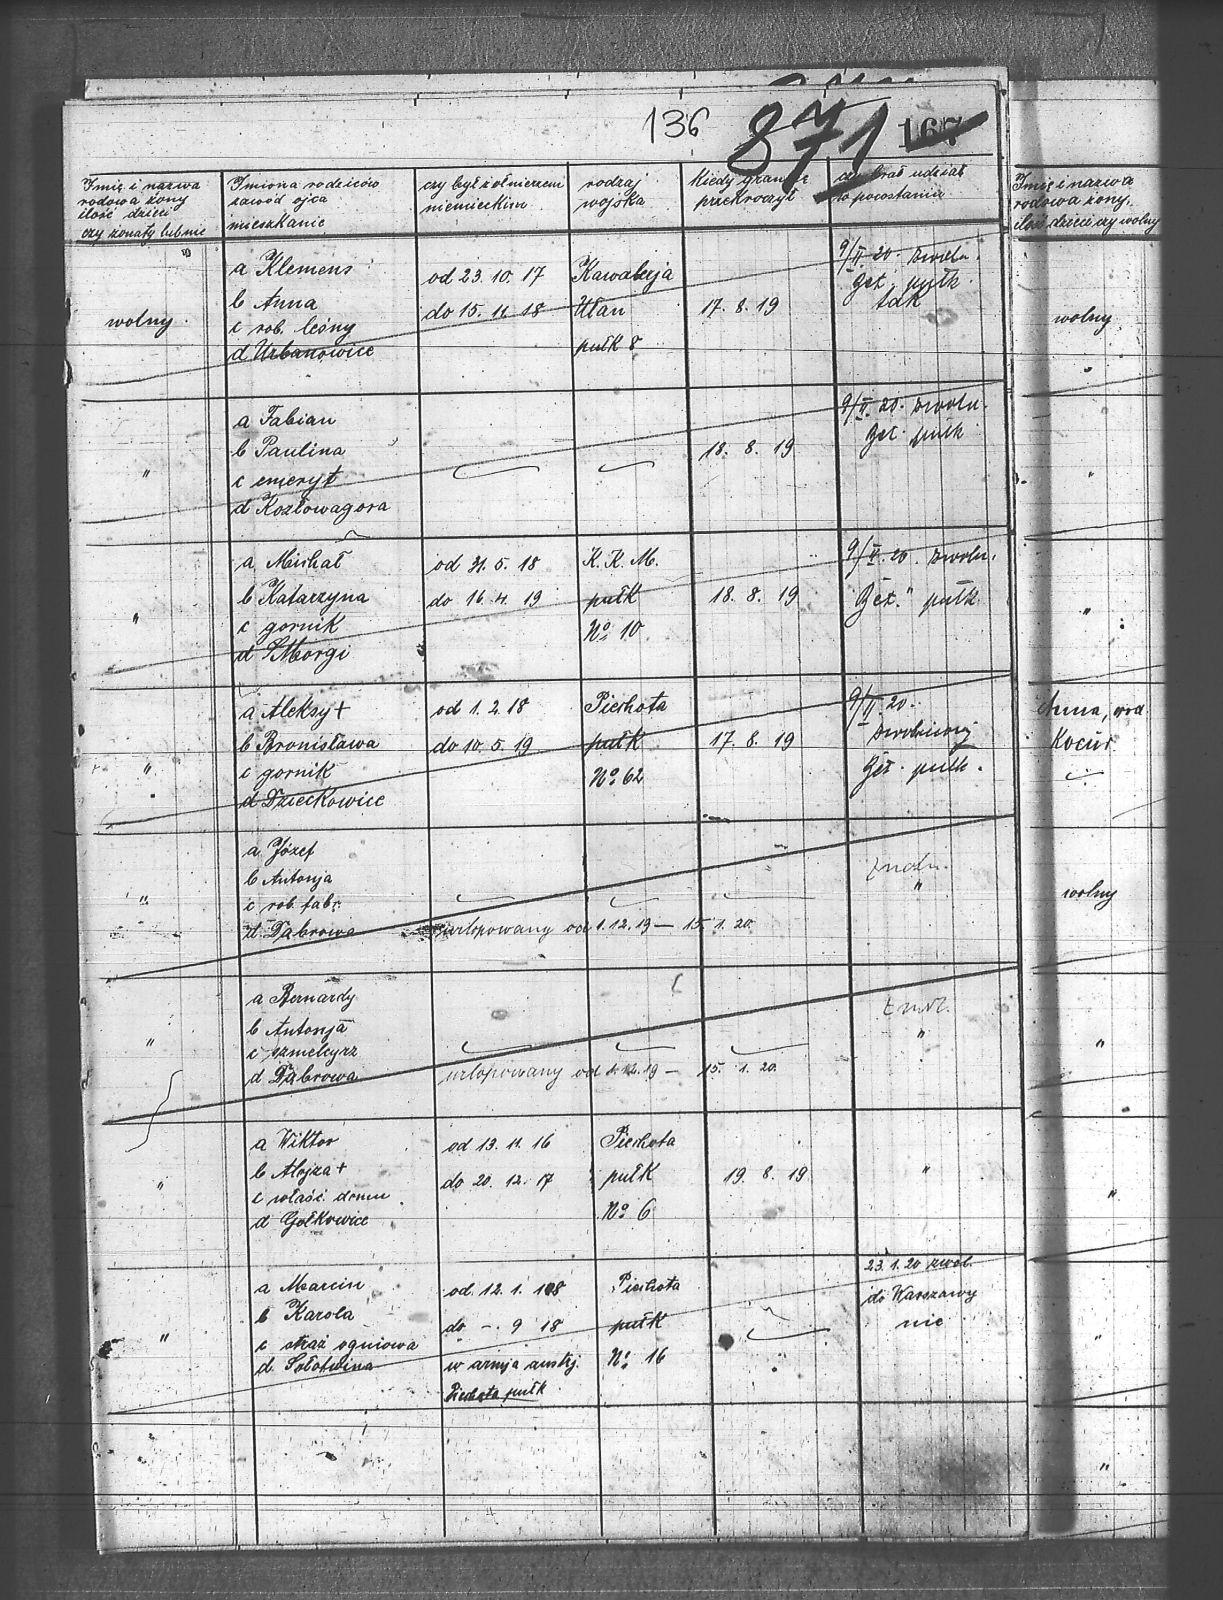 136 871 167
Imię i nazwa
rodowa żony
ilość dzieci
czy żonaty lub nie
Imiona rodziców
zawód ojca
mieszkanie
czy był żołnierzem
niemieckim
rodzaj
wojska
Kiedy granicę
przekroczył
czy brał udział
w powstaniu
wolny
a Klemens
b Anna
c rob. leśny
d Urbanowice
od 23. 10. 17
do 15. 11. 18
Kawalerja
Ułan
pułk 8
17. 8. 19
9/II 20. zwoln.
Bet. pułk.
tak
"
a Fabian
b Paulina
c emeryt
d Kozłowagora
18. 8. 19
9/II. 20. zwoln.
Bet. pułk
"
a Michał
b Katarzyna
c gornik
d Morgi
od 31. 5. 18
do 16. 4. 19
K. K. M.
pułk
No 10
18. 8. 19
9/II. 20. zwoln.
Bet. " pułk
"
a Aleksy +
b Bronisława
c gornik
d Dzieckowice
od 1. 2. 18
do 10. 5. 19
Piechota
pułk
No 62
17. 8. 19
9/II. 20.
Bet. pułk.
"
a Józef
b Antonja
c rob. fabr.
d Dąbrowa
urlopowany od 1. 12. 19 — 15. 1. 20.
zwoln.
"
"
a Bernardy
b Antonja
c szmelcyrz
d Dąbrowa
urlopowany od 1. 12. 19 — 15. 1. 20.
"
"
a Wiktor
b Alojza +
c właśc. domu
d Gołkowice
od 13. 11. 16
do 20. 12. 17
Piechota
pułk
No 6
19. 8. 19
"
"
a Marcin
b Karola
c straż ogniowa
d Sołotwina
od 12. 1. 18
do -. 9 18
w armja austrj.
Piechota pułk
Piechota
pułk
No 16
23. 1. 20 zwol.
do Warszawy
nie
Imię i nazwa
rodowa żony,
ilość dzieci czy wolny
wolny
"
"
Anna, urd.
Kocur
wolny
"
"
"
"